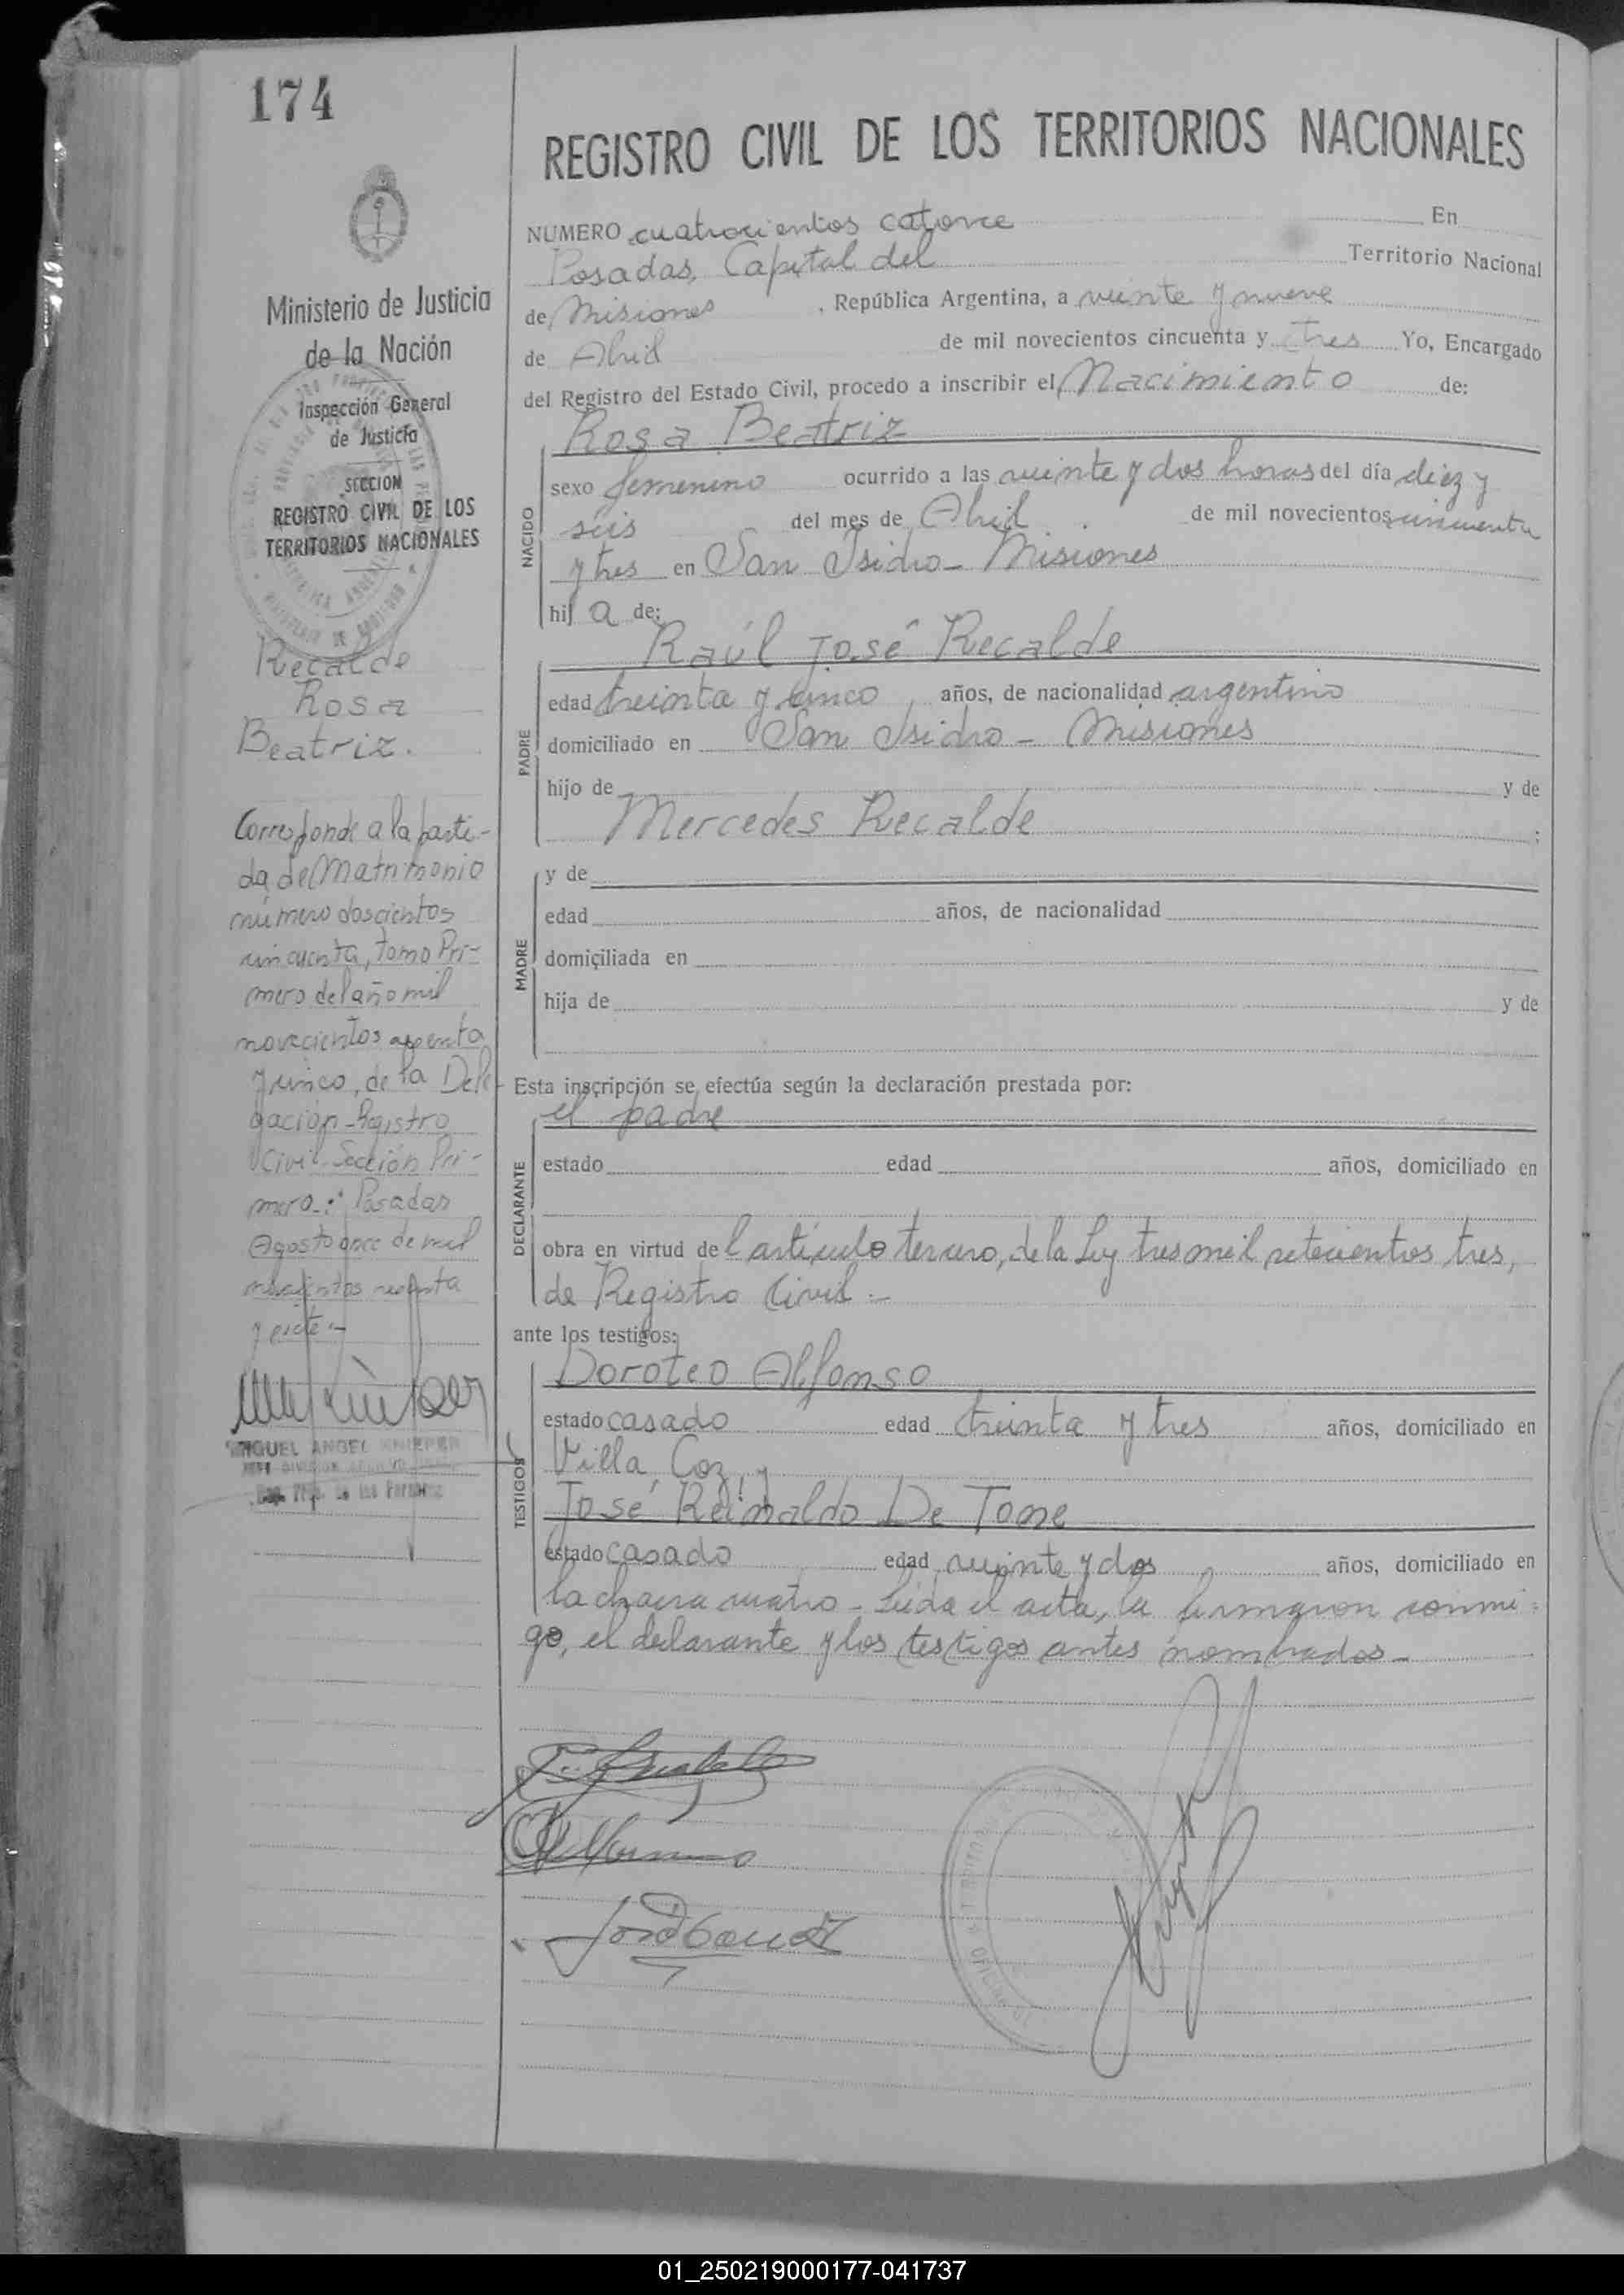 174
Ministerio de Justicia
de la Nación
Inspección General
de Justicia
SECCION
REGISTRO CIVIL DE LOS
TERRITORIOS NACIONALES
Recalde
Rosa
Beatriz.
Corresponde a la parti-
da de Matrimonio
número doscientos
cincuenta, tomo Pri-
mero del año mil
novecientos
y cinco, de la Dele-
gación Registro
Civil Sección Pri-
mera.- Posadas
Agosto once de mil
novecientos
y siete.-
MIGUEL ANGEL
REGISTRO CIVIL DE LOS TERRITORIOS NACIONALES
NUMERO cuatrocientos catorce En
Posadas, Capital del Territorio Nacional
de Misiones, República Argentina, a veinte y nueve
de Abril de mil novecientos cincuenta y tres Yo, Encargado
del Registro del Estado Civil, procedo a inscribir el Nacimiento de:
NACIDO
Rosa Beatriz
sexo femenino ocurrido a las veinte y dos horas del día diez y
seis del mes de Abril de mil novecientos cincuenta
y tres en San Isidro - Misiones
hija de:
PADRE
Raúl José Recalde
edad treinta y cinco años, de nacionalidad argentino
domiciliado en San Isidro - Misiones
hijo de y de
Mercedes Recalde ;
MADRE
y de
edad años, de nacionalidad
domiciliada en
hija de y de
Esta inscripción se efectúa según la declaración prestada por:
DECLARANTE
el padre
estado edad años, domiciliado en
obra en virtud del artículo tercero, de la Ley tres mil setecientos tres,
de Registro Civil.-
ante los testigos:
TESTIGOS
Doroteo Alfonso
estado casado edad treinta y tres años, domiciliado en
Villa Coz, y
José Reinaldo De Tone
estado casado edad veinte y dos años, domiciliado en
la chacra cuatro - Leída el acta, la firmaron conmi-
go, el declarante y los testigos antes nombrados -
01_250219000177-041737